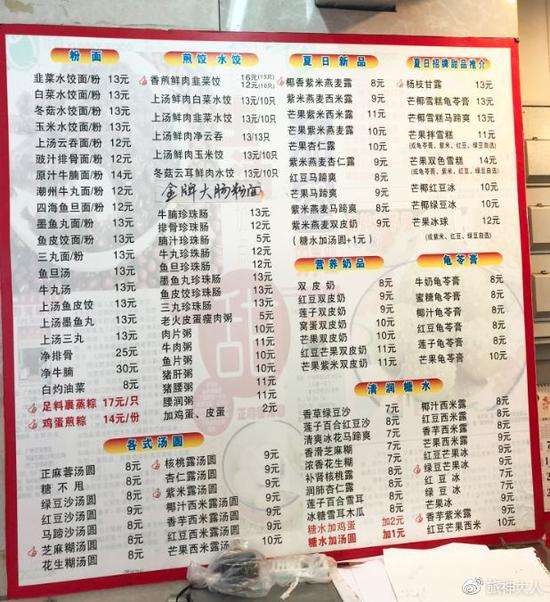 粉面
韭菜水饺面/粉 13元
白菜水饺面/粉 13元
冬菇水饺面/粉 13元
玉米水饺面/粉 13元
上汤云吞面/粉 12元
豉汁排骨面/粉 12元
原汁牛腩面/粉 14元
潮州牛丸面/粉 12元
四海鱼旦面/粉 12元
墨鱼丸面/粉 13元
鱼皮饺面/粉 13元
三丸面/粉 13元
鱼旦汤 11元
牛丸汤 11元
上汤鱼皮饺 13元
上汤墨鱼丸 13元
上汤三丸 13元
净排骨 25元
净牛腩 30元
白灼油菜 8元
足料裹蒸粽 17元/只
鸡蛋煎粽 14元/份
煎饺 水饺
香煎鲜肉韭菜饺 16元(15只)
12元(10只)
上汤鲜肉白菜水饺 13元/10只
上汤鲜肉韭菜水饺 13元/10只
上汤鲜肉净云吞 13/13只
上汤鲜肉玉米饺 13元/10只
冬菇云耳鲜肉水饺 13元/10只
金牌大肠粉面
牛腩珍珠肠 13元
排骨珍珠肠 12元
腩汁珍珠肠 5元
牛丸珍珠肠 12元
鱼旦珍珠肠 12元
墨鱼丸珍珠肠 13元
鱼皮饺珍珠肠 13元
三丸珍珠肠 13元
老火皮蛋瘦肉粥 5元
肉片粥 10元
牛肉粥 11元
鱼片粥 10元
猪肝粥 10元
猪腰粥 11元
腰润粥 11元
加鸡蛋、皮蛋 2元
夏日新品
椰香紫米燕麦露 8元
紫米燕麦西米露 9元
芒果紫米西米露 11元
芒果紫米燕麦露 10元
芒果杏仁露 9元
紫米燕麦杏仁露 9元
红豆马蹄爽 8元
芒果马蹄爽 9元
紫米燕麦马蹄爽 8元
紫米燕麦双皮奶 9元
(糖水加汤圆+1元)
夏日招牌甜品推介
杨枝甘露 13元
芒椰雪糕龟苓膏 13元
芒椰雪糕马蹄爽 13元
芒果拌雪糕 11元
(或龟苓膏、紫米、红豆、绿豆自选)
芒果双色雪糕 14元
(或龟苓膏、紫米、红豆、绿豆自选)
芒椰红豆冰 12元
芒椰绿豆冰 12元
芒果冰球 12元
(或紫米、红豆、绿豆自选)
营养奶品
双皮奶 8元
红豆双皮奶 9元
莲子双皮奶 9元
窝蛋双皮奶 10元
芒果双皮奶 10元
红豆芒果双皮奶 11元
紫米双皮奶 9元
龟苓膏
牛奶龟苓膏 8元
蜜糖龟苓膏 8元
椰汁龟苓膏 8元
红豆龟苓膏 9元
莲子龟苓膏 9元
芒果龟苓膏 10元
清润糖水
香草绿豆沙 7元
莲子百合红豆沙 7元
清爽冰花马蹄爽 7元
香滑芝麻糊 7元
浓香花生糊 7元
补肾核桃露 8元
润肺杏仁露 8元
莲子百合雪耳 8元
冰糖雪耳木瓜 8元
糖水加鸡蛋 加2元
糖水加汤圆 加1元
椰汁西米露 8元
紫米西米露 8元
香芋西米露 9元
芒果西米露 9元
红豆芒果冰 9元
绿豆芒果冰 9元
红豆冰 7元
绿豆冰 7元
芒果冰 9元
香芋紫米露 9元
红豆芒果西米 10元
各式汤圆
正麻蓉汤圆 8元
糖不甩 8元
绿豆沙汤圆 8元
红豆沙汤圆 8元
马蹄沙汤圆 8元
芝麻糊汤圆 8元
花生糊汤圆 8元
核桃露汤圆 9元
杏仁露汤圆 9元
紫米露汤圆 9元
椰汁西米露汤圆 9元
香芋西米露汤圆 9元
紫米西米露汤圆 9元
芒果西米露汤圆
旅神夫人